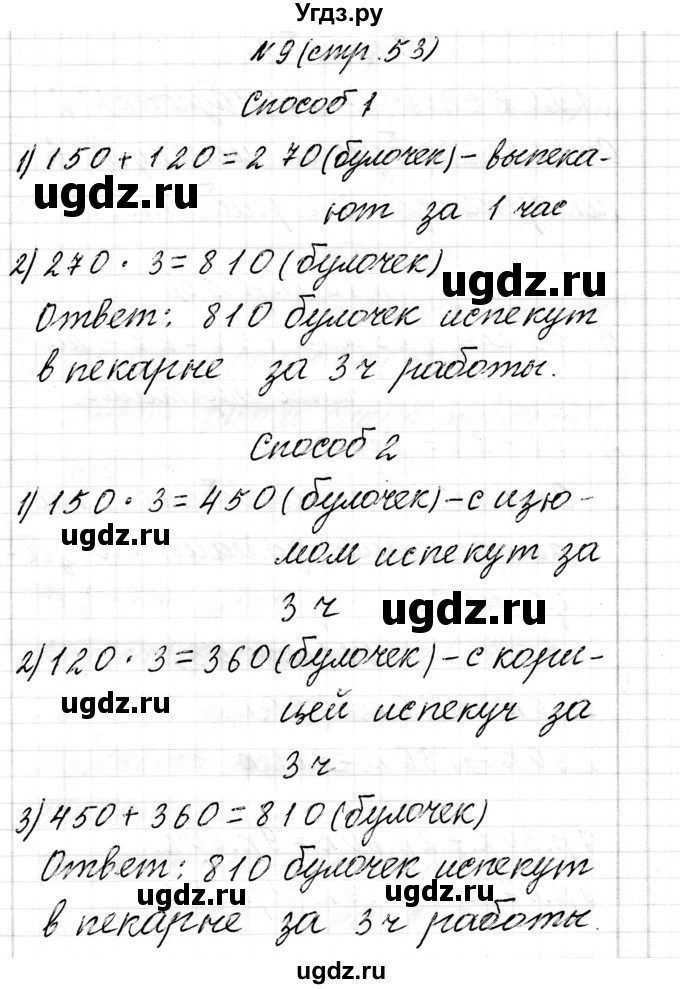 Угдз.ру
№9 (стр. 53)
Способ 1
1) 150 + 120 = 270 (булочек) – выпека-
ugdz.ru
ют за 1 час
2) 270 · 3 = 810 (булочек)
ugdz.ru
Ответ: 810 булочек испекут
в пекарне за 3 ч работы.
Способ 2
1) 150 · 3 = 450 (булочек) – с изю-
ugdz.ru
мом испекут за
3 ч
ugdz.ru
2) 120 · 3 = 360 (булочек) – с кори-
ugdz.ru
цей испекуч за
3 ч
3) 450 + 360 = 810 (булочек)
Ответ: 810 булочек испекут
ugdz.ru
ugdz.ru
в пекарне за 3 ч работы.
ugdz.ru